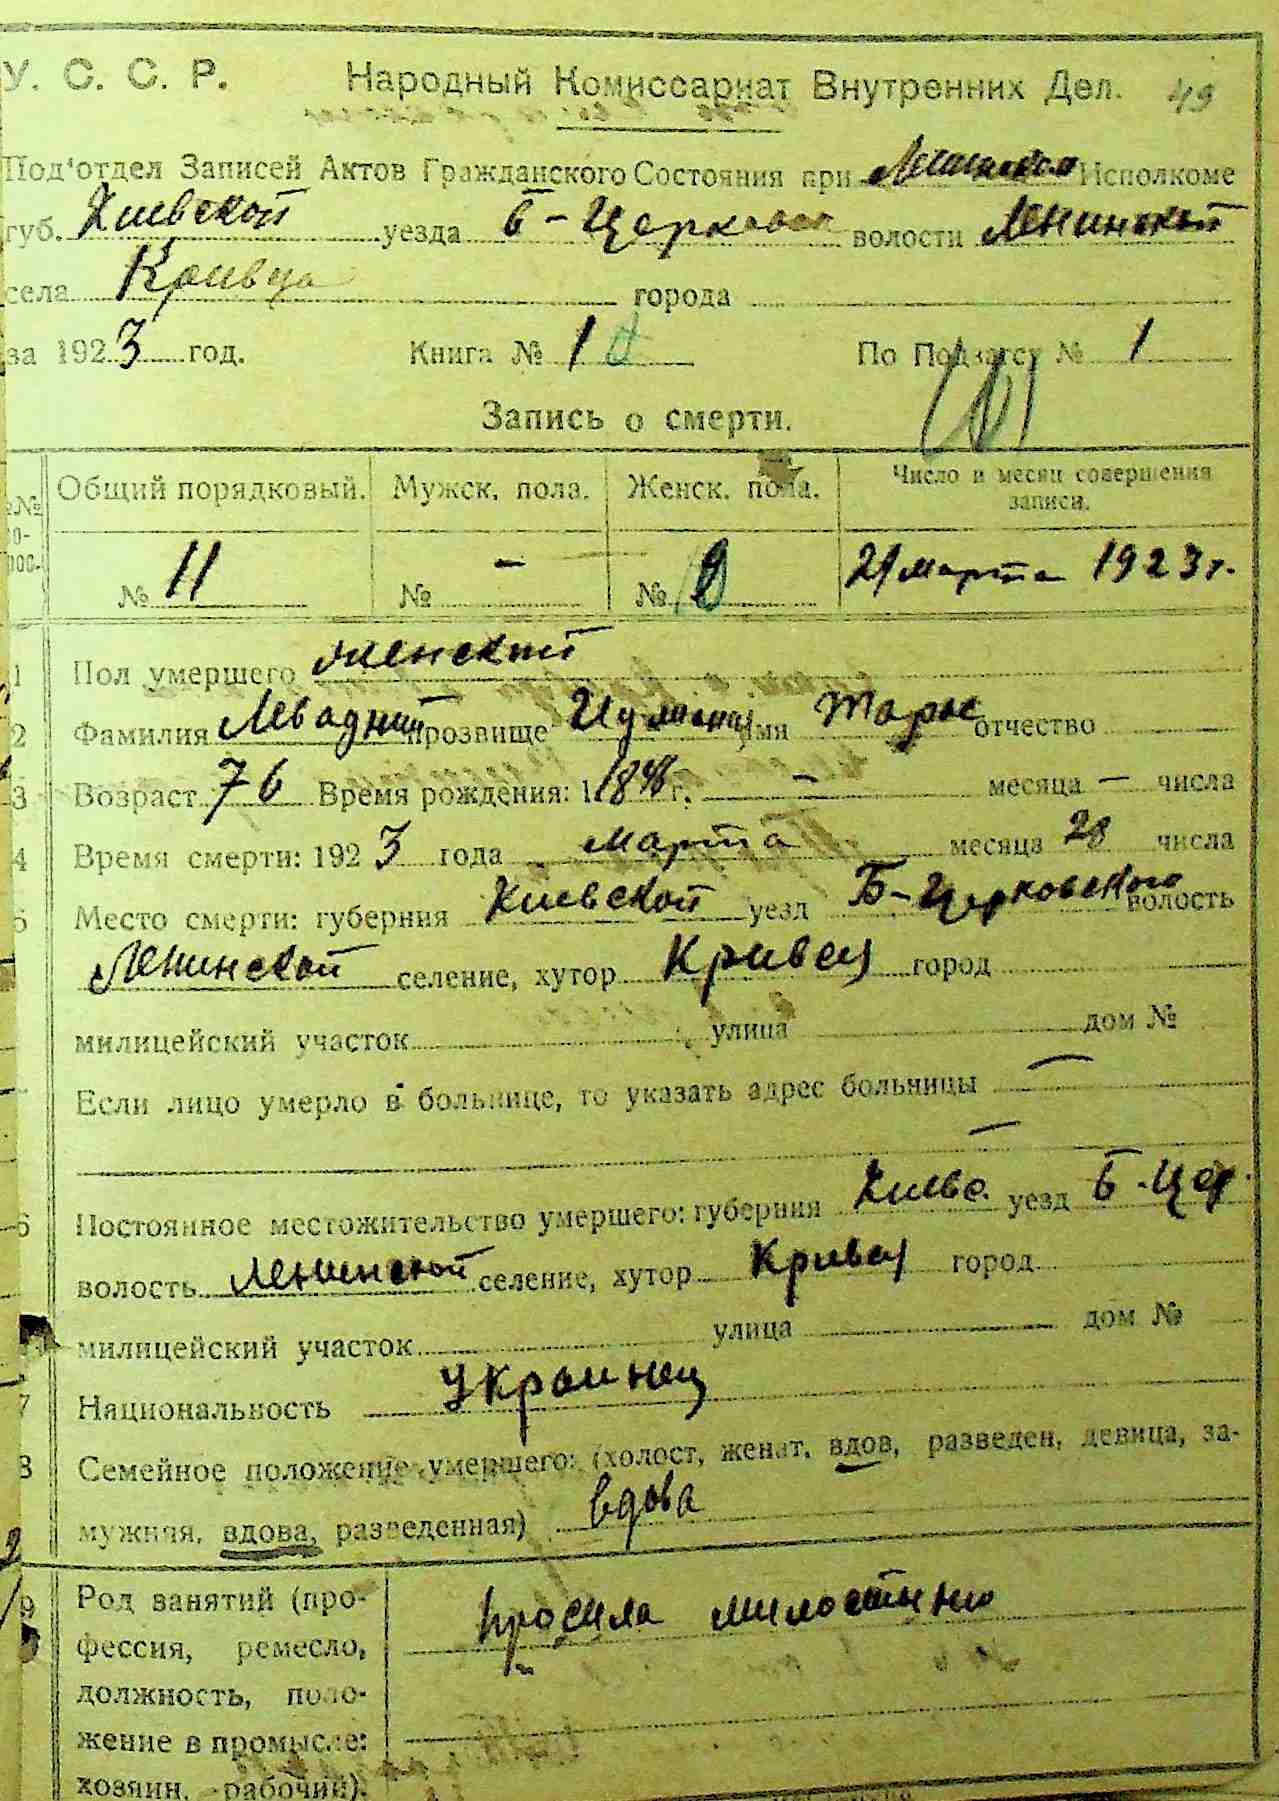 У. С. С. Р. Народный Комиссариат Внутренних Дел. 49
Под'отдел Записей Актов Гражданского Состояния при Ленинском Исполкоме
губ. Киевской уезда Б-Церковск волости Ленинской
села Кривца города
за 1923 год. Книга № 1 По Подзагсу № 1
Запись о смерти.
Общий порядковый. Мужск. пола. Женск. пола. Число и месяц совершения
записи.
№ 11 № - № 9 29 марта 1923 г.
1 Пол умершего женский
2 Фамилия Левадний прозвище имя Тарас отчество
3 Возраст 76 Время рождения: 1846 г. - месяца - числа
4 Время смерти: 1923 года марта месяца 28 числа
5 Место смерти: губерния Киевской уезд Б-Церковского волость
Ленинской селение, хутор Кривец город
милицейский участок улица дом №
Если лицо умерло в больнице, то указать адрес больницы —
—
6 Постоянное местожительство умершего: губерния Киевс. уезд Б-Цер.
волость Ленинской селение, хутор Кривец город
милицейский участок улица дом №
7 Национальность Украинец
8 Семейное положение умершего: (холост, женат, вдов, разведен, девица, за-
мужняя, вдова, разведенная) вдова
9 Род занятий (про- просила милостиню
фессия, ремесло,
должность, поло-
жение в промысле:
хозяин, рабочий).